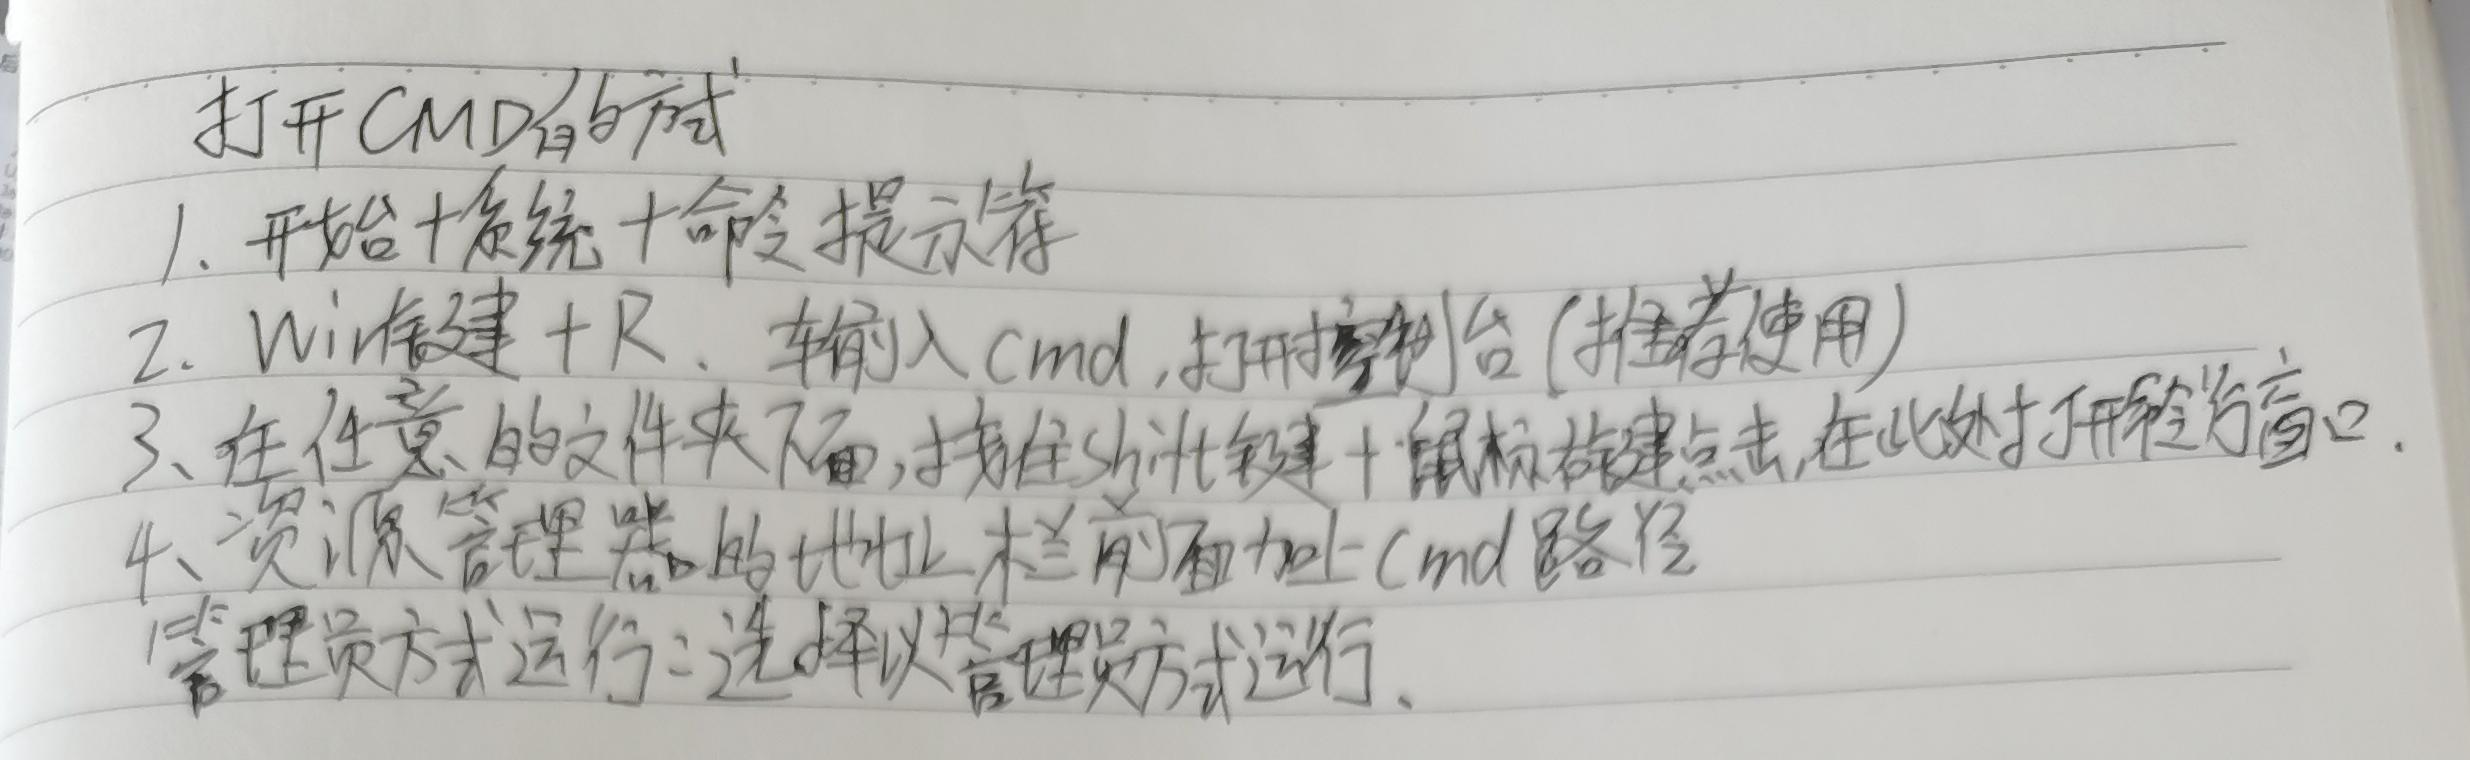 打开CMD的方式
1. 开始+系统+命令提示符
2. Win键+R. 输入cmd,打开控制台(推荐使用)
3、在任意的文件夹下面,按住shift键+鼠标右键点击,在此处打开行窗口.
4、资源管理器的地址栏前面加上cmd路径
管理员方式运行:选择以管理员方式运行、